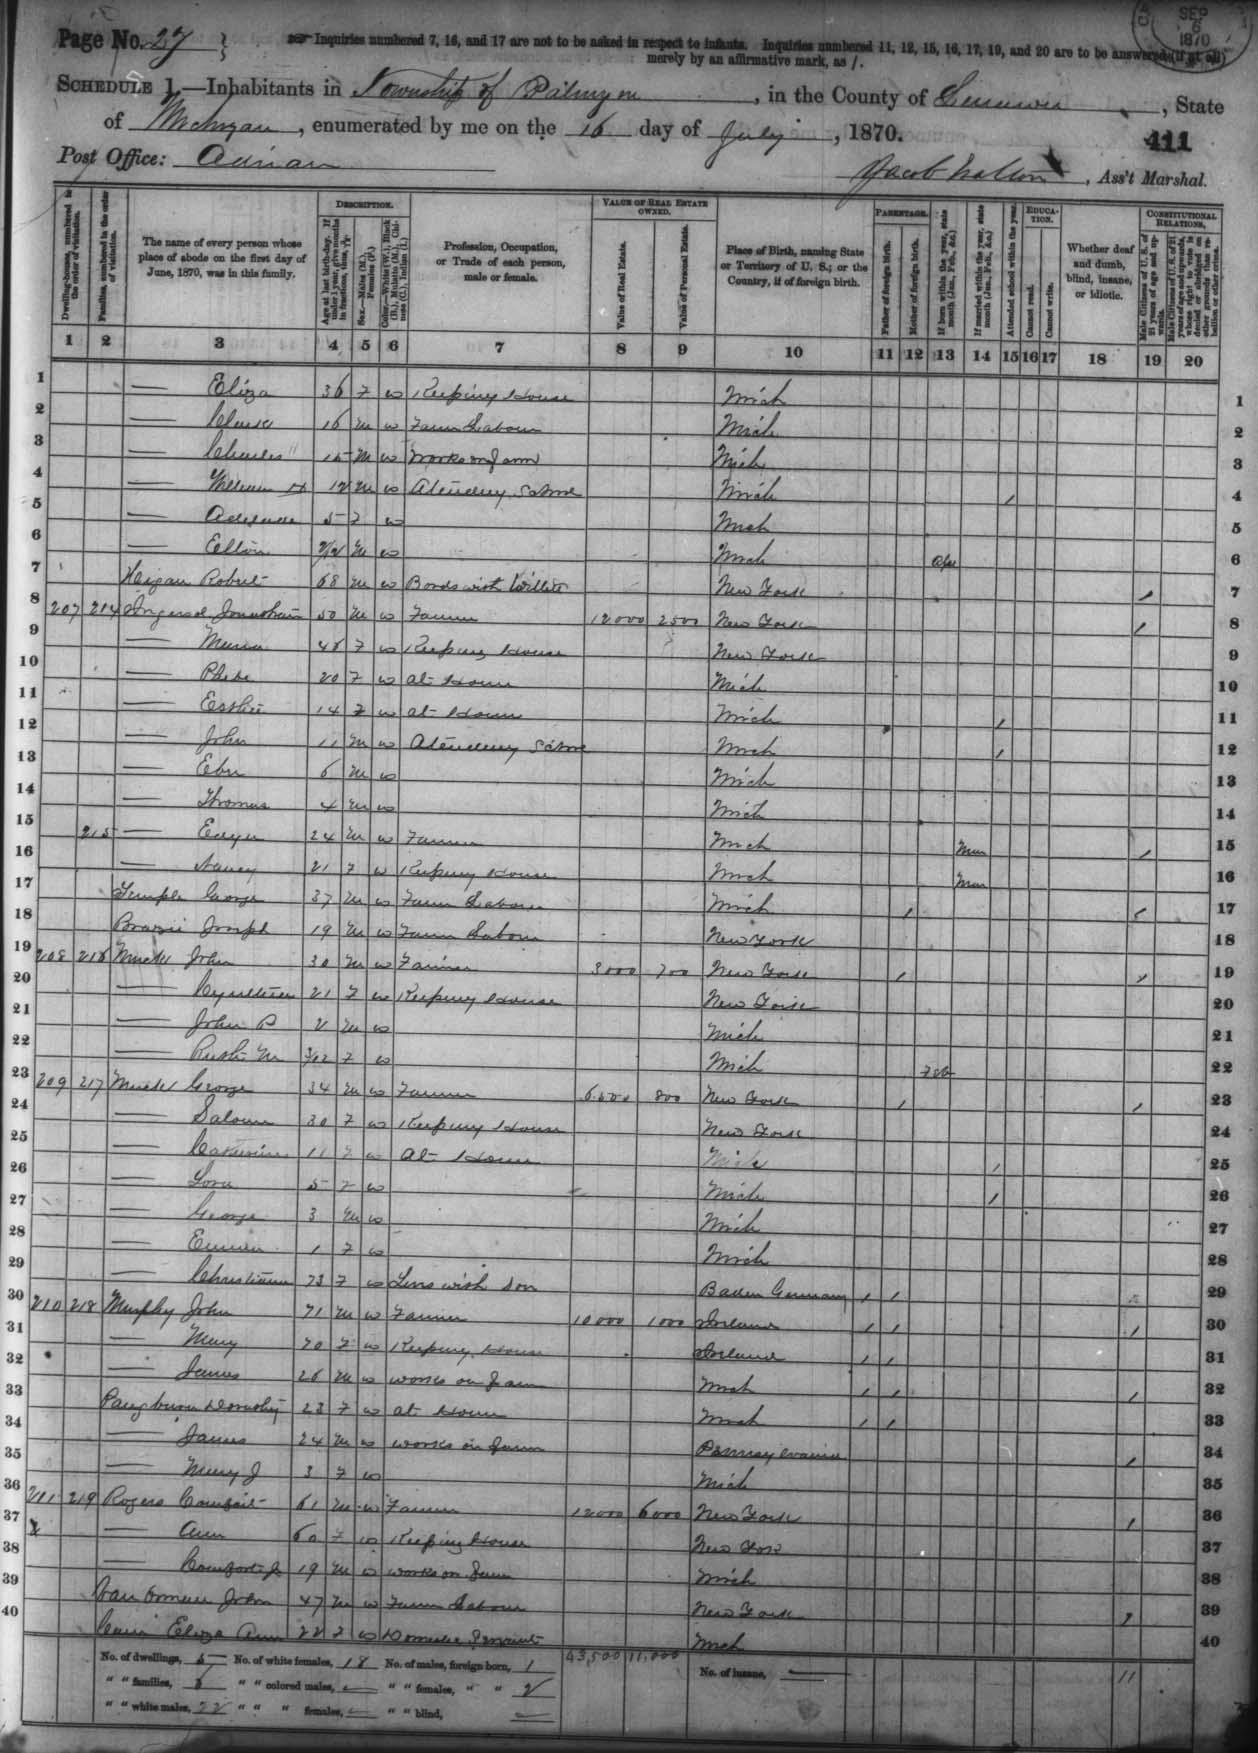 SEP 6 1870
Page No. 27
Inquiries numbered 7, 16, and 17 are not to be asked in respect to infants. Inquiries numbered 11, 12, 15, 16, 17, 19, and 20 are to be answered (if at all)
merely by an affirmative mark, as /.
SCHEDULE 1.—Inhabitants in Township of Palmyra, in the County of Lenawee, State
of Michigan, enumerated by me on the 16 day of July, 1870.
411
Post Office: Adrian
Jacob, Ass't Marshal.
Dwelling-houses, numbered in the order of visitation.
Families, numbered in the order of visitation.
The name of every person whose place of abode on the first day of June, 1870, was in this family.
DESCRIPTION.
Age at last birth-day. If under 1 year, give months in fractions, thus, 3/12
Sex.—Males (M.), Females (F.)
Color.—White (W.), Black (B.), Mulatto (M.), Chinese (C.), Indian (I.)
Profession, Occupation, or Trade of each person, male or female.
VALUE OF REAL ESTATE OWNED.
Value of Real Estate.
Value of Personal Estate.
Place of Birth, naming State or Territory of U. S.; or the Country, if of foreign birth.
PARENTAGE.
Father of foreign birth.
Mother of foreign birth.
If born within the year, state month (Jan., Feb., &c.)
If married within the year, state month (Jan., Feb., &c.)
Attended school within the year.
EDUCATION.
Cannot read.
Cannot write.
Whether deaf and dumb, blind, insane, or idiotic.
CONSTITUTIONAL RELATIONS.
Male Citizens of U. S. of 21 years of age and upwards.
Male Citizens of U. S. of 21 years of age and upwards, whose right to vote is denied or abridged on other grounds than rebellion or other crime.
1 2 3 4 5 6 7 8 9 10 11 12 13 14 15 16 17 18 19 20
1 — Eliza 36 F W Keeping House Mich 1
2 — 16 M W Farm Labour Mich 2
3 — Charles 15 M W Works on farm Mich 3
4 — William H 12 M W Atending School Mich / 4
5 — 5 F W Mich 5
6 — M W Mich 6
7 Robert 68 M W Bords with New York / 7
8 207 214 Ingersol Jonathan 50 M W Farmer 12000 2500 New York / 8
9 — 48 F W Keeping House New York 9
10 — Phebe 20 F W At Home Mich 10
11 — Esther 14 F W At Home Mich / 11
12 — John 11 M W Atending School Mich / 12
13 — 6 M W Mich 13
14 — Thomas 4 M W Mich 14
15 215 — 24 M W Farmer Mich / 15
16 — Nancy 21 F W Keeping House Mich 16
17 Temple George 37 M W Farm Labour Mich / / 17
18 Joseph 19 M W Farm Labour New York 18
19 208 216 John 30 M W Farmer 3000 700 New York / / 19
20 — 21 F W Keeping House New York 20
21 — John P 2 M W Mich 21
22 — M 3/12 F W Mich Feb 22
23 209 217 George 34 M W Farmer 800 New York / / 23
24 — 30 F W Keeping House New York 24
25 — Catherine 11 F W At Home Mich / 25
26 — 5 F W Mich / 26
27 — George 3 M W Mich 27
28 — 1 F W Mich 28
29 — 73 F W Lives with Son Baden Germany / / 29
30 210 218 Murphy John 71 M W Farmer 10000 1000 Ireland / / / 30
31 — Mary 70 F W Keeping House Ireland / / 31
32 — James 26 M W works on farm Mich / / / 32
33 Pangburn 23 F W At Home Mich / / 33
34 — James 24 M W works on farm / 34
35 — Mary J 3 F W Mich 35
36 211 219 Rogers Comfort 61 M W Farmer 12000 6000 New York / 36
37 — Ann 60 F W Keeping House New York 37
38 — Comfort Jr 19 M W works on farm Mich 38
39 John 47 M W Farm Labour New York / 39
40 Eliza Ann 22 F W Domestic Servant Mich 40
No. of dwellings, 5 No. of white females, 18 No. of males, foreign born, 1 43,500 11,000 No. of insane, — 11
" " families, 6 " " colored males, — " " females, " " 2
" " white males, 22 " " " females, — " " blind, —